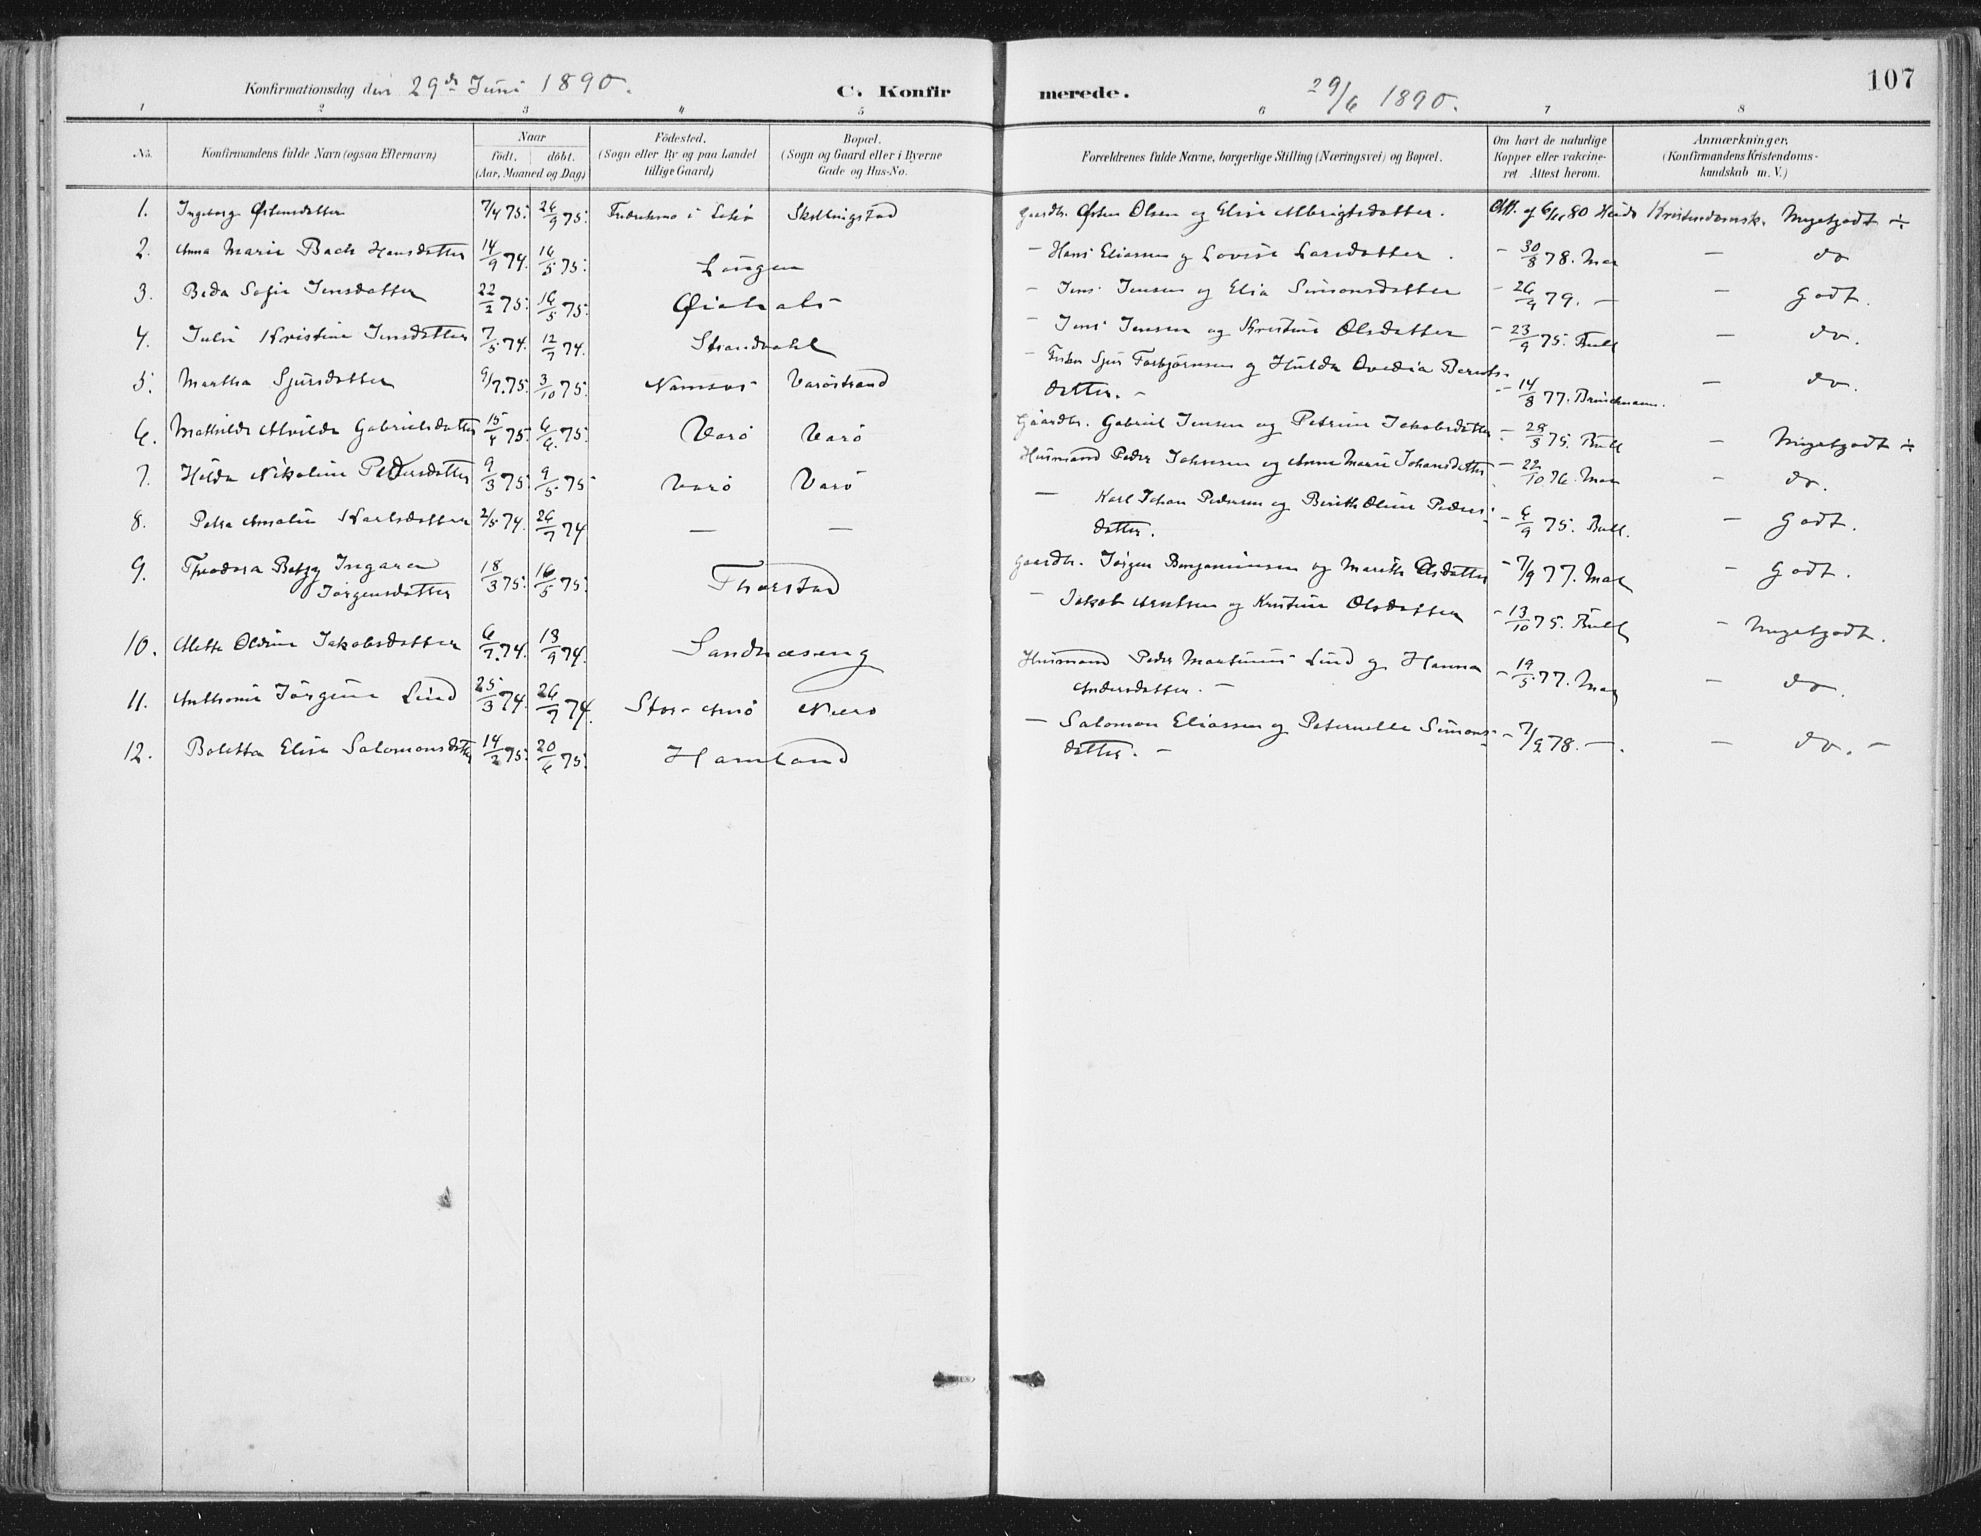 107
Konfirmationsdag den 29de Juni 1890.
C. Konfir merede.
29/6 1890.
1 2 3 4 5 6 7 8
No.
Konfirmandens fulde Navn (ogsaa Efternavn)
Naar
födt. döbt.
(Aar, Maaned og Dag)
Födested.
(Sogn eller By og paa Landet
tillige Gaard)
Bopæl.
(Sogn og Gaard eller i Byerne
Gade og Hus-No.
Forældrenes fulde Navne, borgerlige Stilling (Næringsvei) og Bopæl.
Om havt de naturlige
Kopper eller vakcine-
ret Attest herom.
Anmærkninger.
(Konfirmandens Kristendoms-
kundskab m. V.)
1. Ingeborg Østensdatter 7/4 75. 26/9 75. i Skillingstad Gaardbr. Østen Olsen og Elise Albrigtsdatter. Att. af 6/11 80 Kristendomsk. Megetgodt ÷
2. Anna Marie Bach Hansdatter 14/9 74. 16/5 75. Laugen — Hans Eliassen og Lovise Larsdatter. - 30/8 78. — do
3. Beda Sofie Jensdatter 22/2 75. 16/5 75. — Jens Jensen og Elia Simonsdatter - 26/9 79. — — Godt.
4. Julie Kristine Jensdatter 7/5 74. 12/7 74. Strandvahl — Jens Jensen og Kristine Olsdatter - 23/9 75. Bull — do.
5. Martha Sjursdatter 9/7 75. 3/10 75. Namsos Varöstrand — Fisker Sjur Torbjørnsen og Hulda Ovedia Bernts-
datter. — - 14/8 77. Brinchmann. — do.
6. Mathilde Alvilde Gabrielsdatter 15/4 75. 6/6 75. Varö Varö Gaardbr. Gabriel Jensen og Petrine Jakobsdatter - 28/3 75. Bull — Megetgodt ÷
7. Hilda Nikoline Pedersdatter 9/3 75. 9/5 75 Varö Varö Husmand Peder Johnsen og Anne Marie Johansdatter - 22/10 76. — do.
8. Petra Amalie Karlsdatter 2/5 74. 26/7 74 — — — Karl Johan Pedersen og Berith Oline Peders-
datter. - 6/9 75. Bull. — Godt.
9. Theodora Betzy Ingara
Jörgensdatter 18/3 75. 16/5 75. Thorstad Gaardbr. Jörgen Benjaminsen og Marith Olsdatter - 7/9 77. — Godt.
10. Mette Oldine Jakobsdatter 6/7 74. 13/9 74. Sandnæseng — Jakob Arntsen og Kristine Olsdatter - 13/10 75. Bull — Megetgodt.
11. Anthonie Jörgine Lind 25/3 74. 26/7 74. Husmand Peder Martinus Lind og Hanna
Andersdatter. — - 19/5 77. — do.
12. Boletta Elise Salomonsdatter 14/2 75. 20/6 75. Hamland — Salomon Eliassen og Peternelle Simons-
datter. — - 7/9 78. —. — do. —